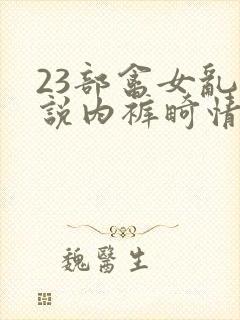 23部畜女乱
説内裤畸情
魏醫生